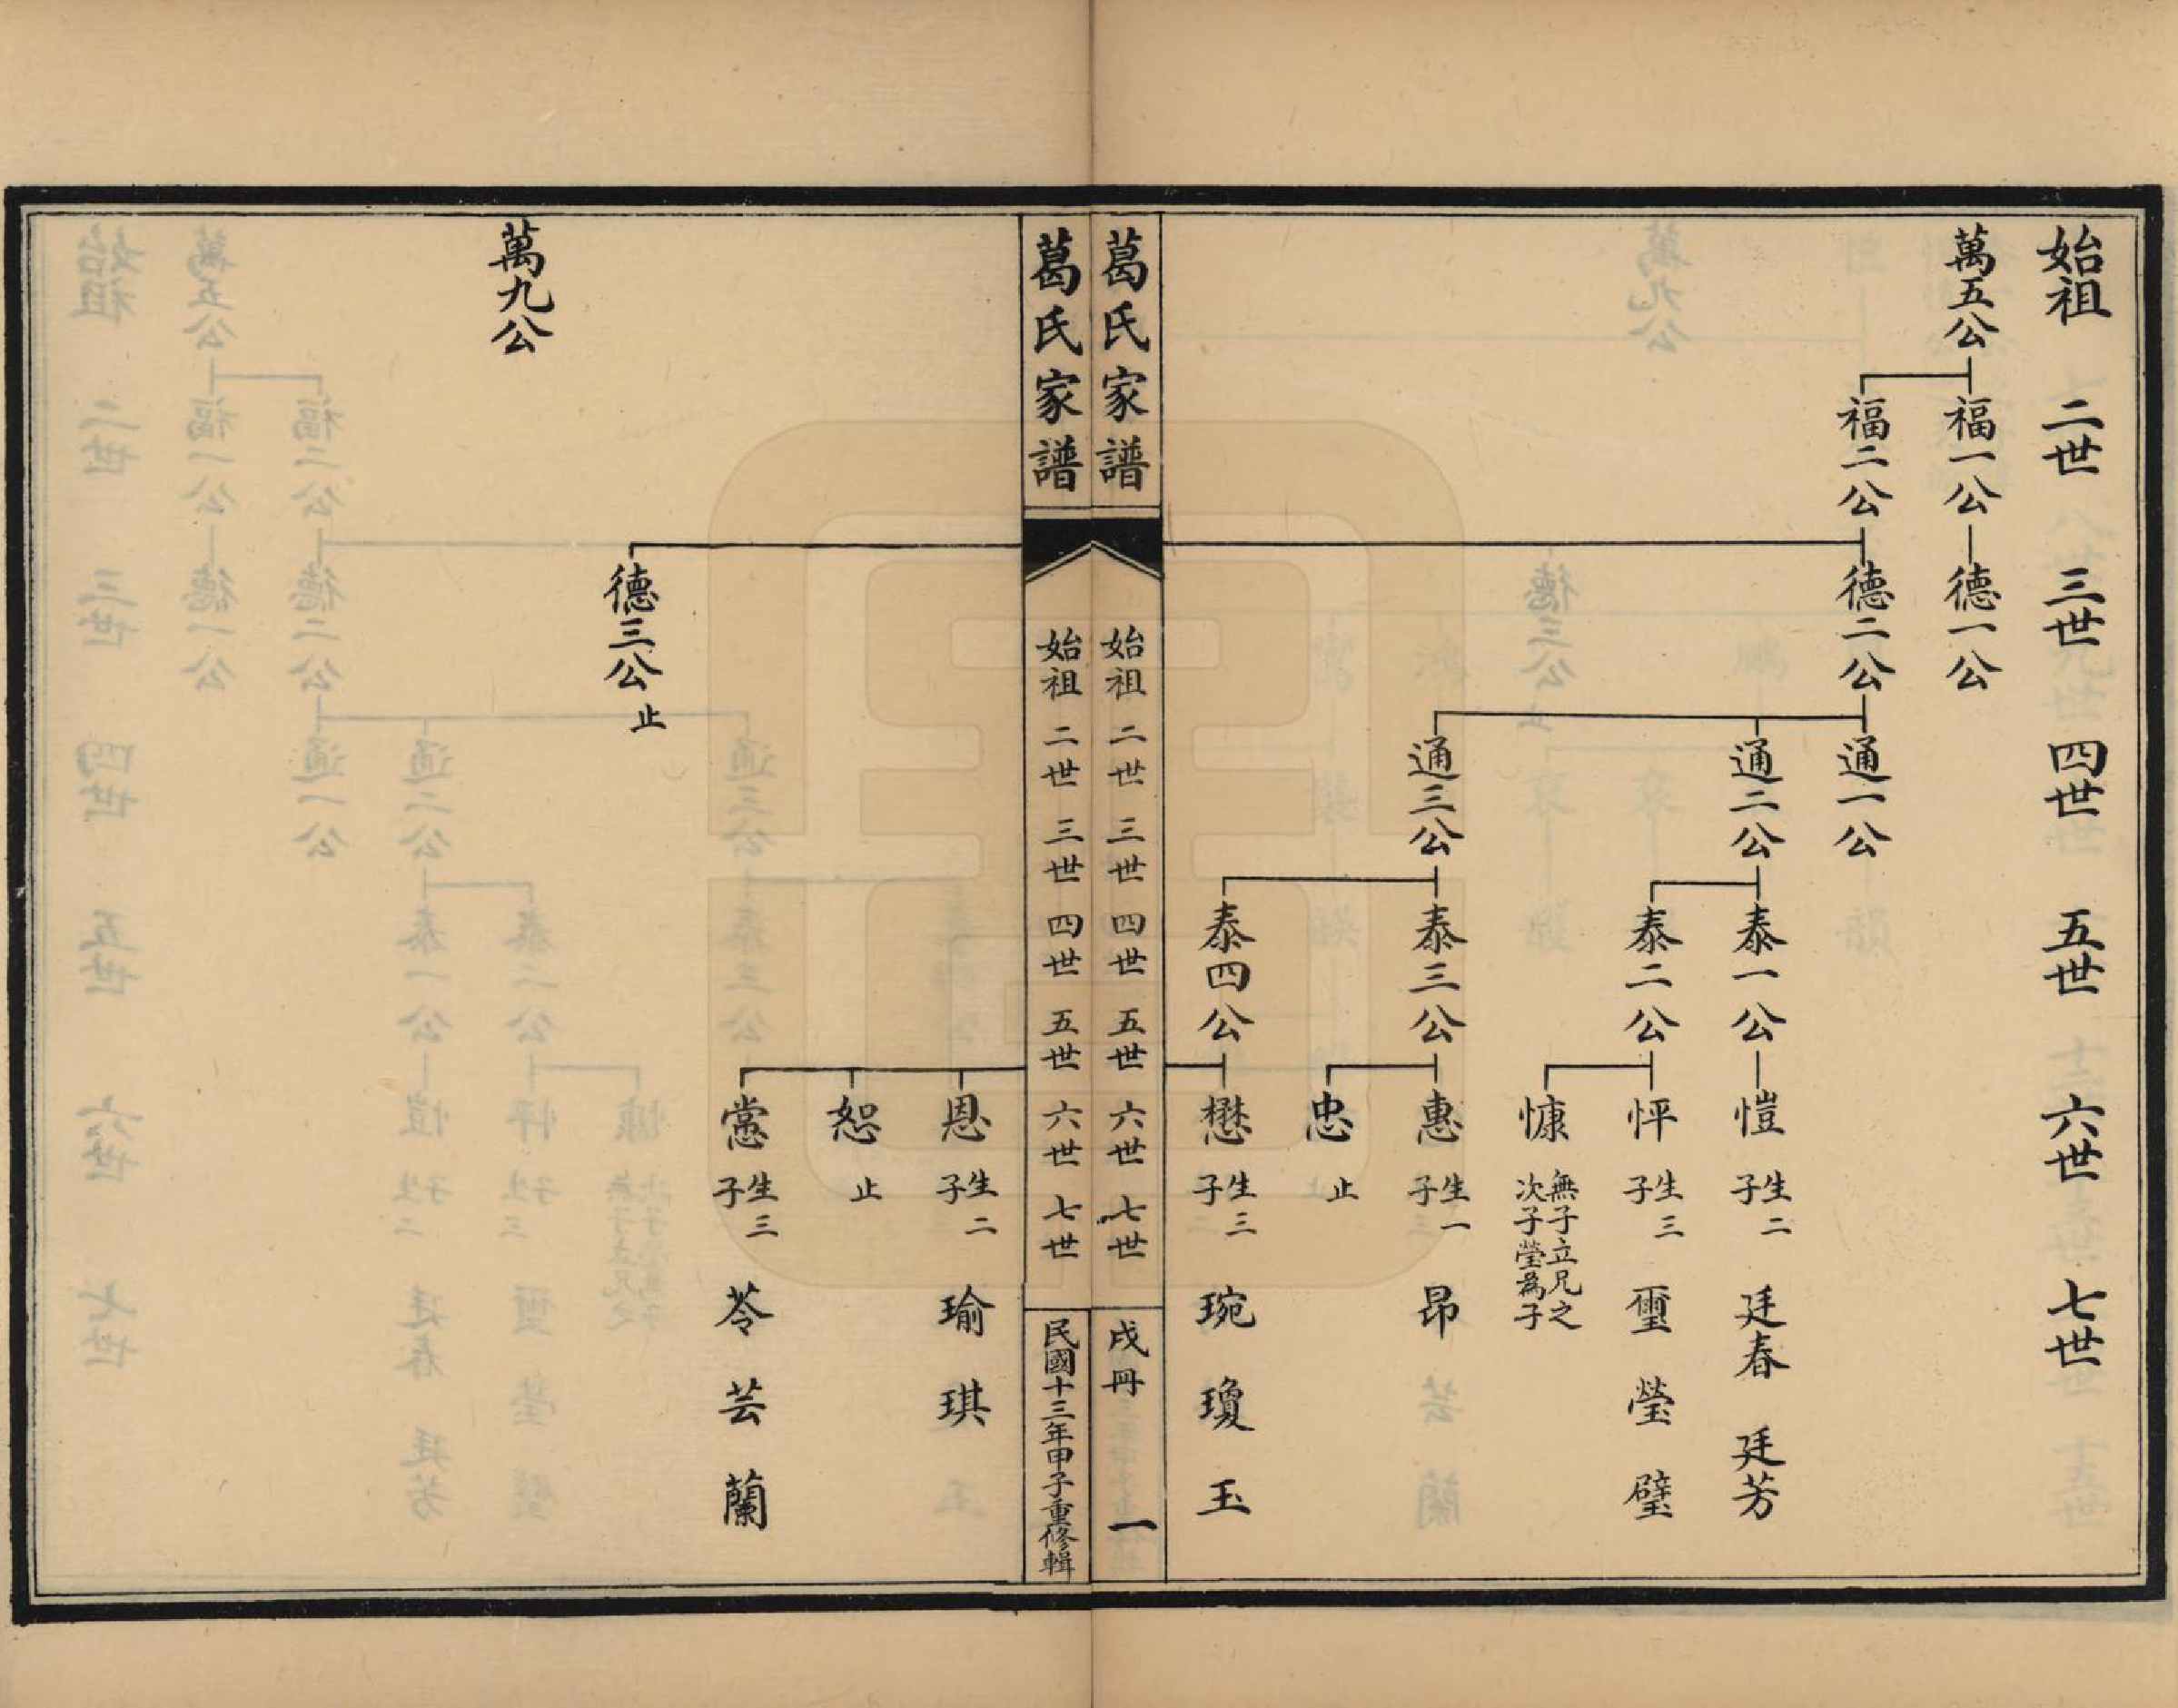 始祖 二世 三世 四世 五世 六世 七世
萬五公 福一公 德一公
福二公 德二公 通一公
通二公 泰一公 愷 生二子 廷春 廷芳
泰二公 怦 生三子 璽 瑩 璧
慷 無子立兄之次子瑩為子
通三公 泰三公 惠 生一子 昂
忠 止
泰四公 懋 生三子 琬 瓊 玉
葛氏家譜 始祖 二世 三世 四世 五世 六世 七世 戌冊 一
葛氏家譜 始祖 二世 三世 四世 五世 六世 七世 民國十三年甲子重修輯
恩 生二子 瑜 琪
恕 止
戃 生三子 苓 芸 蘭
德三公 止
萬九公